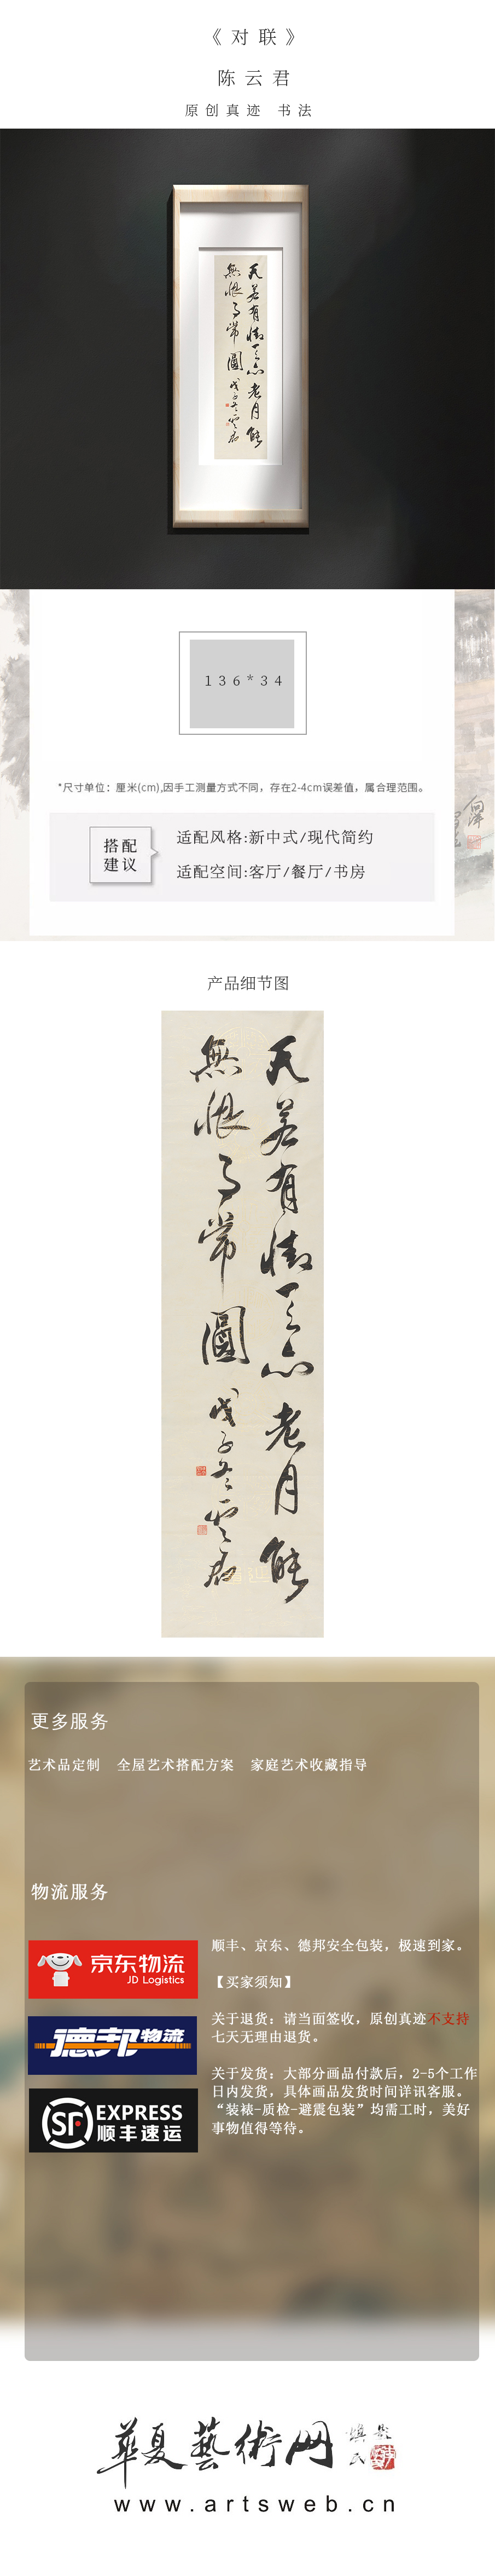 《对联》
陈云君
原创真迹 书法
天若有情天亦老月能
無恨月常圓
戊子冬云君
136*34
*尺寸单位：厘米(cm),因手工测量方式不同，存在2-4cm误差值，属合理范围。
搭配
建议
适配风格:新中式/现代简约
适配空间:客厅/餐厅/书房
产品细节图
天若有情天亦老月能
無恨月常圓
戊子冬云君
更多服务
艺术品定制 全屋艺术搭配方案 家庭艺术收藏指导
物流服务
京东物流
JD Logistics
德邦物流
SF EXPRESS
顺丰速运
顺丰、京东、德邦安全包装，极速到家。
【买家须知】
关于退货：请当面签收，原创真迹不支持
七天无理由退货。
关于发货：大部分画品付款后，2-5个工作
日内发货，具体画品发货时间详讯客服。
“装裱-质检-避震包装”均需工时，美好
事物值得等待。
華夏藝術网
www.artsweb.cn